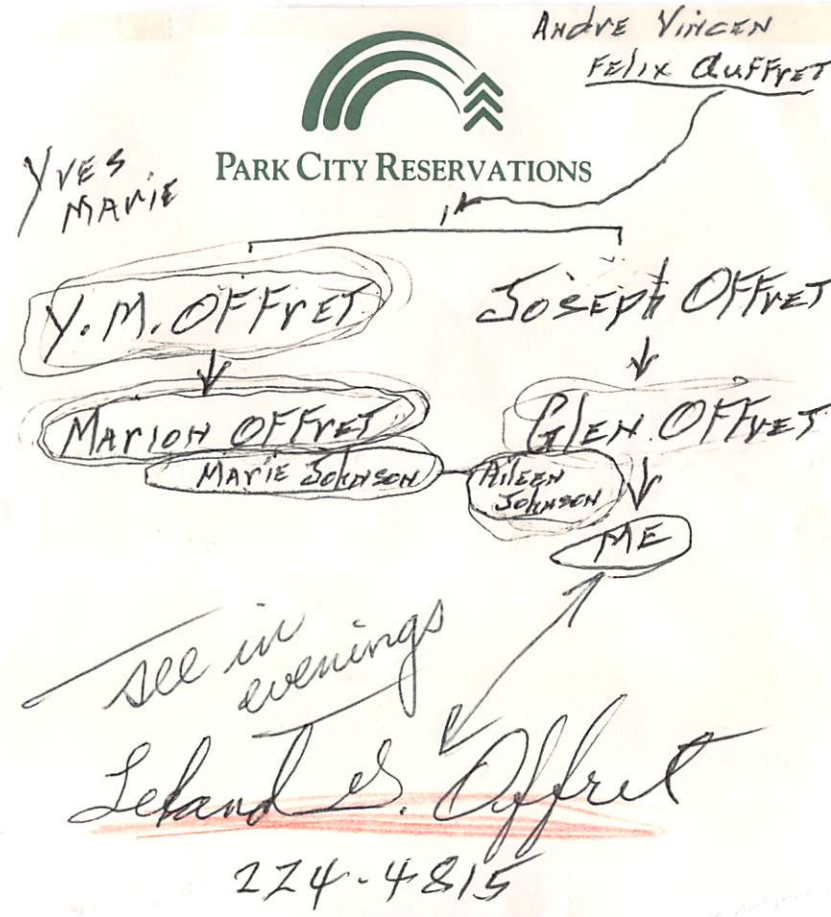 Andre Vincen
Felix Auffret
PARK CITY RESERVATIONS
Yves
Marie
Y. M. Offret
Joseph Offret
Marion Offret
Glen Offret
Marie Johnson
Aileen
Johnson
ME
See in
evenings
Leland G. Offret
224-4815